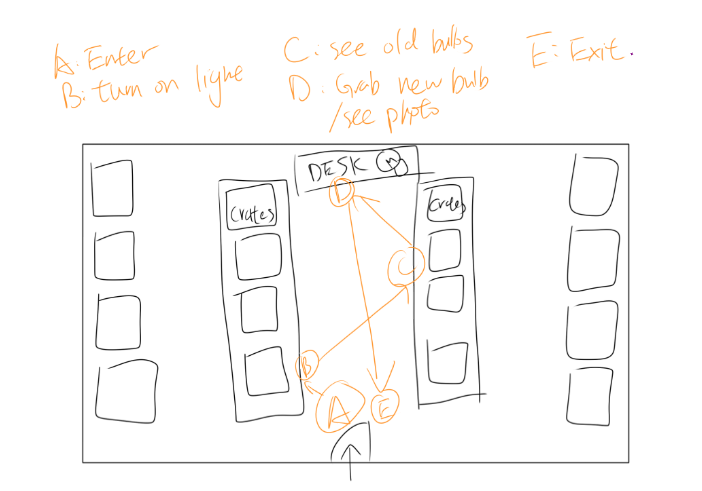 A: Enter
B: turn on light
C: see old bulbs
D: Grab new bulb
/see photo
E: Exit.
DESK
D
Crates
Crates
C
B
A
E